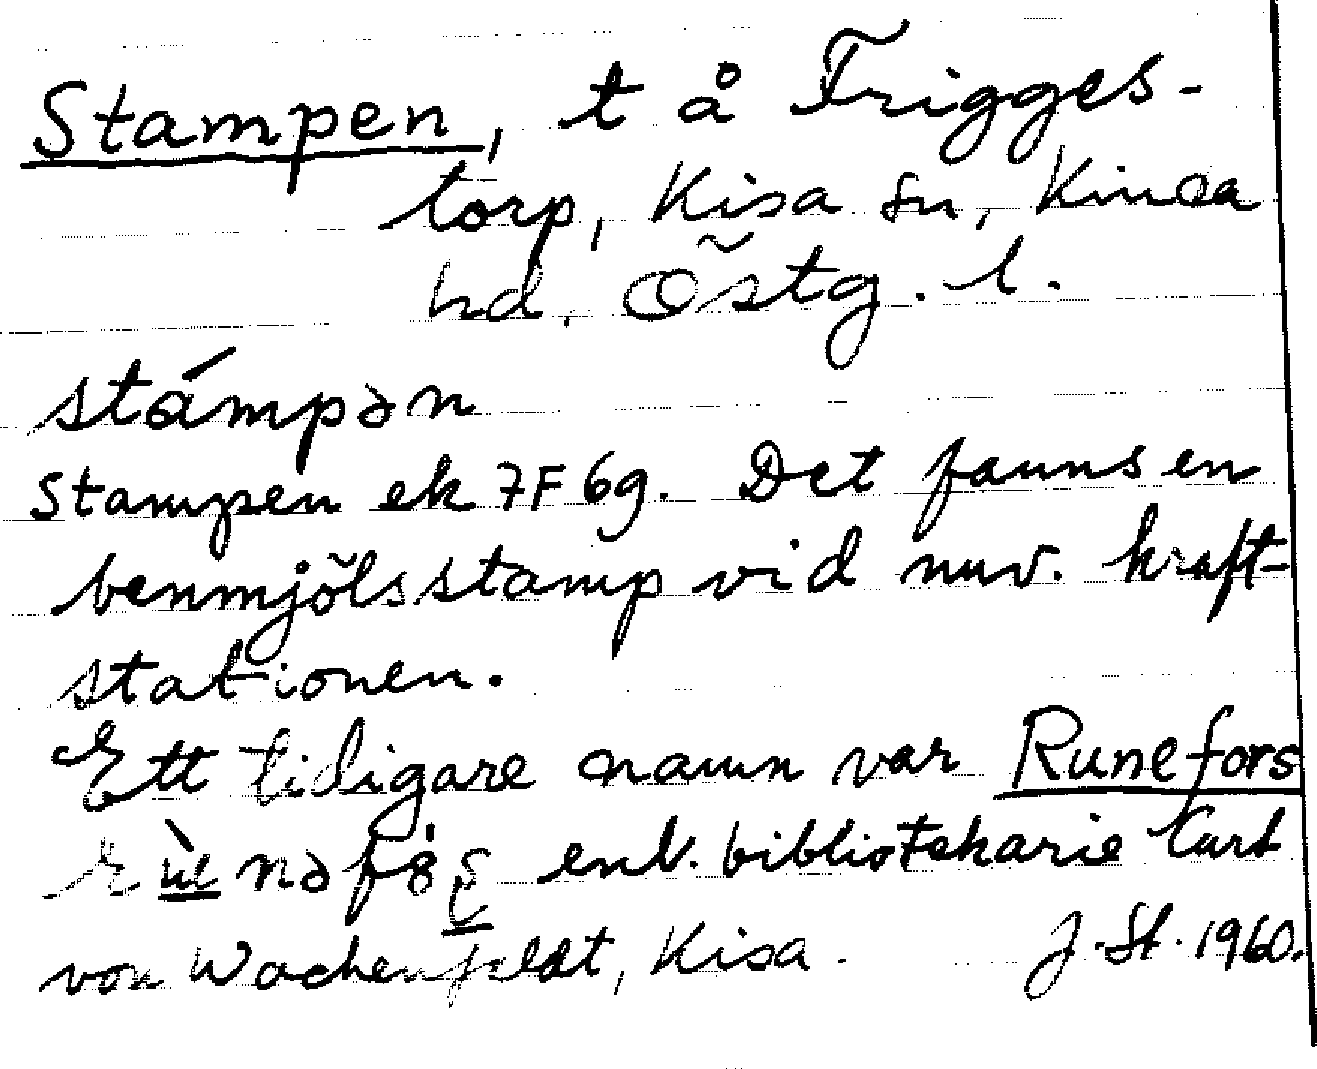 Stampen, t å Frigges-
torp, Kisa sn, Kinda
hd, Östg. l.
stámpən
Stampen ek 7F 6g. Det fanns en
benmjölsstamp vid nuv. kraft-
stationen.
Ett tidigare namn var Runefors
enl. bibliotekarie Curt
von Wachenfeldt, Kisa. J. St. 1960.